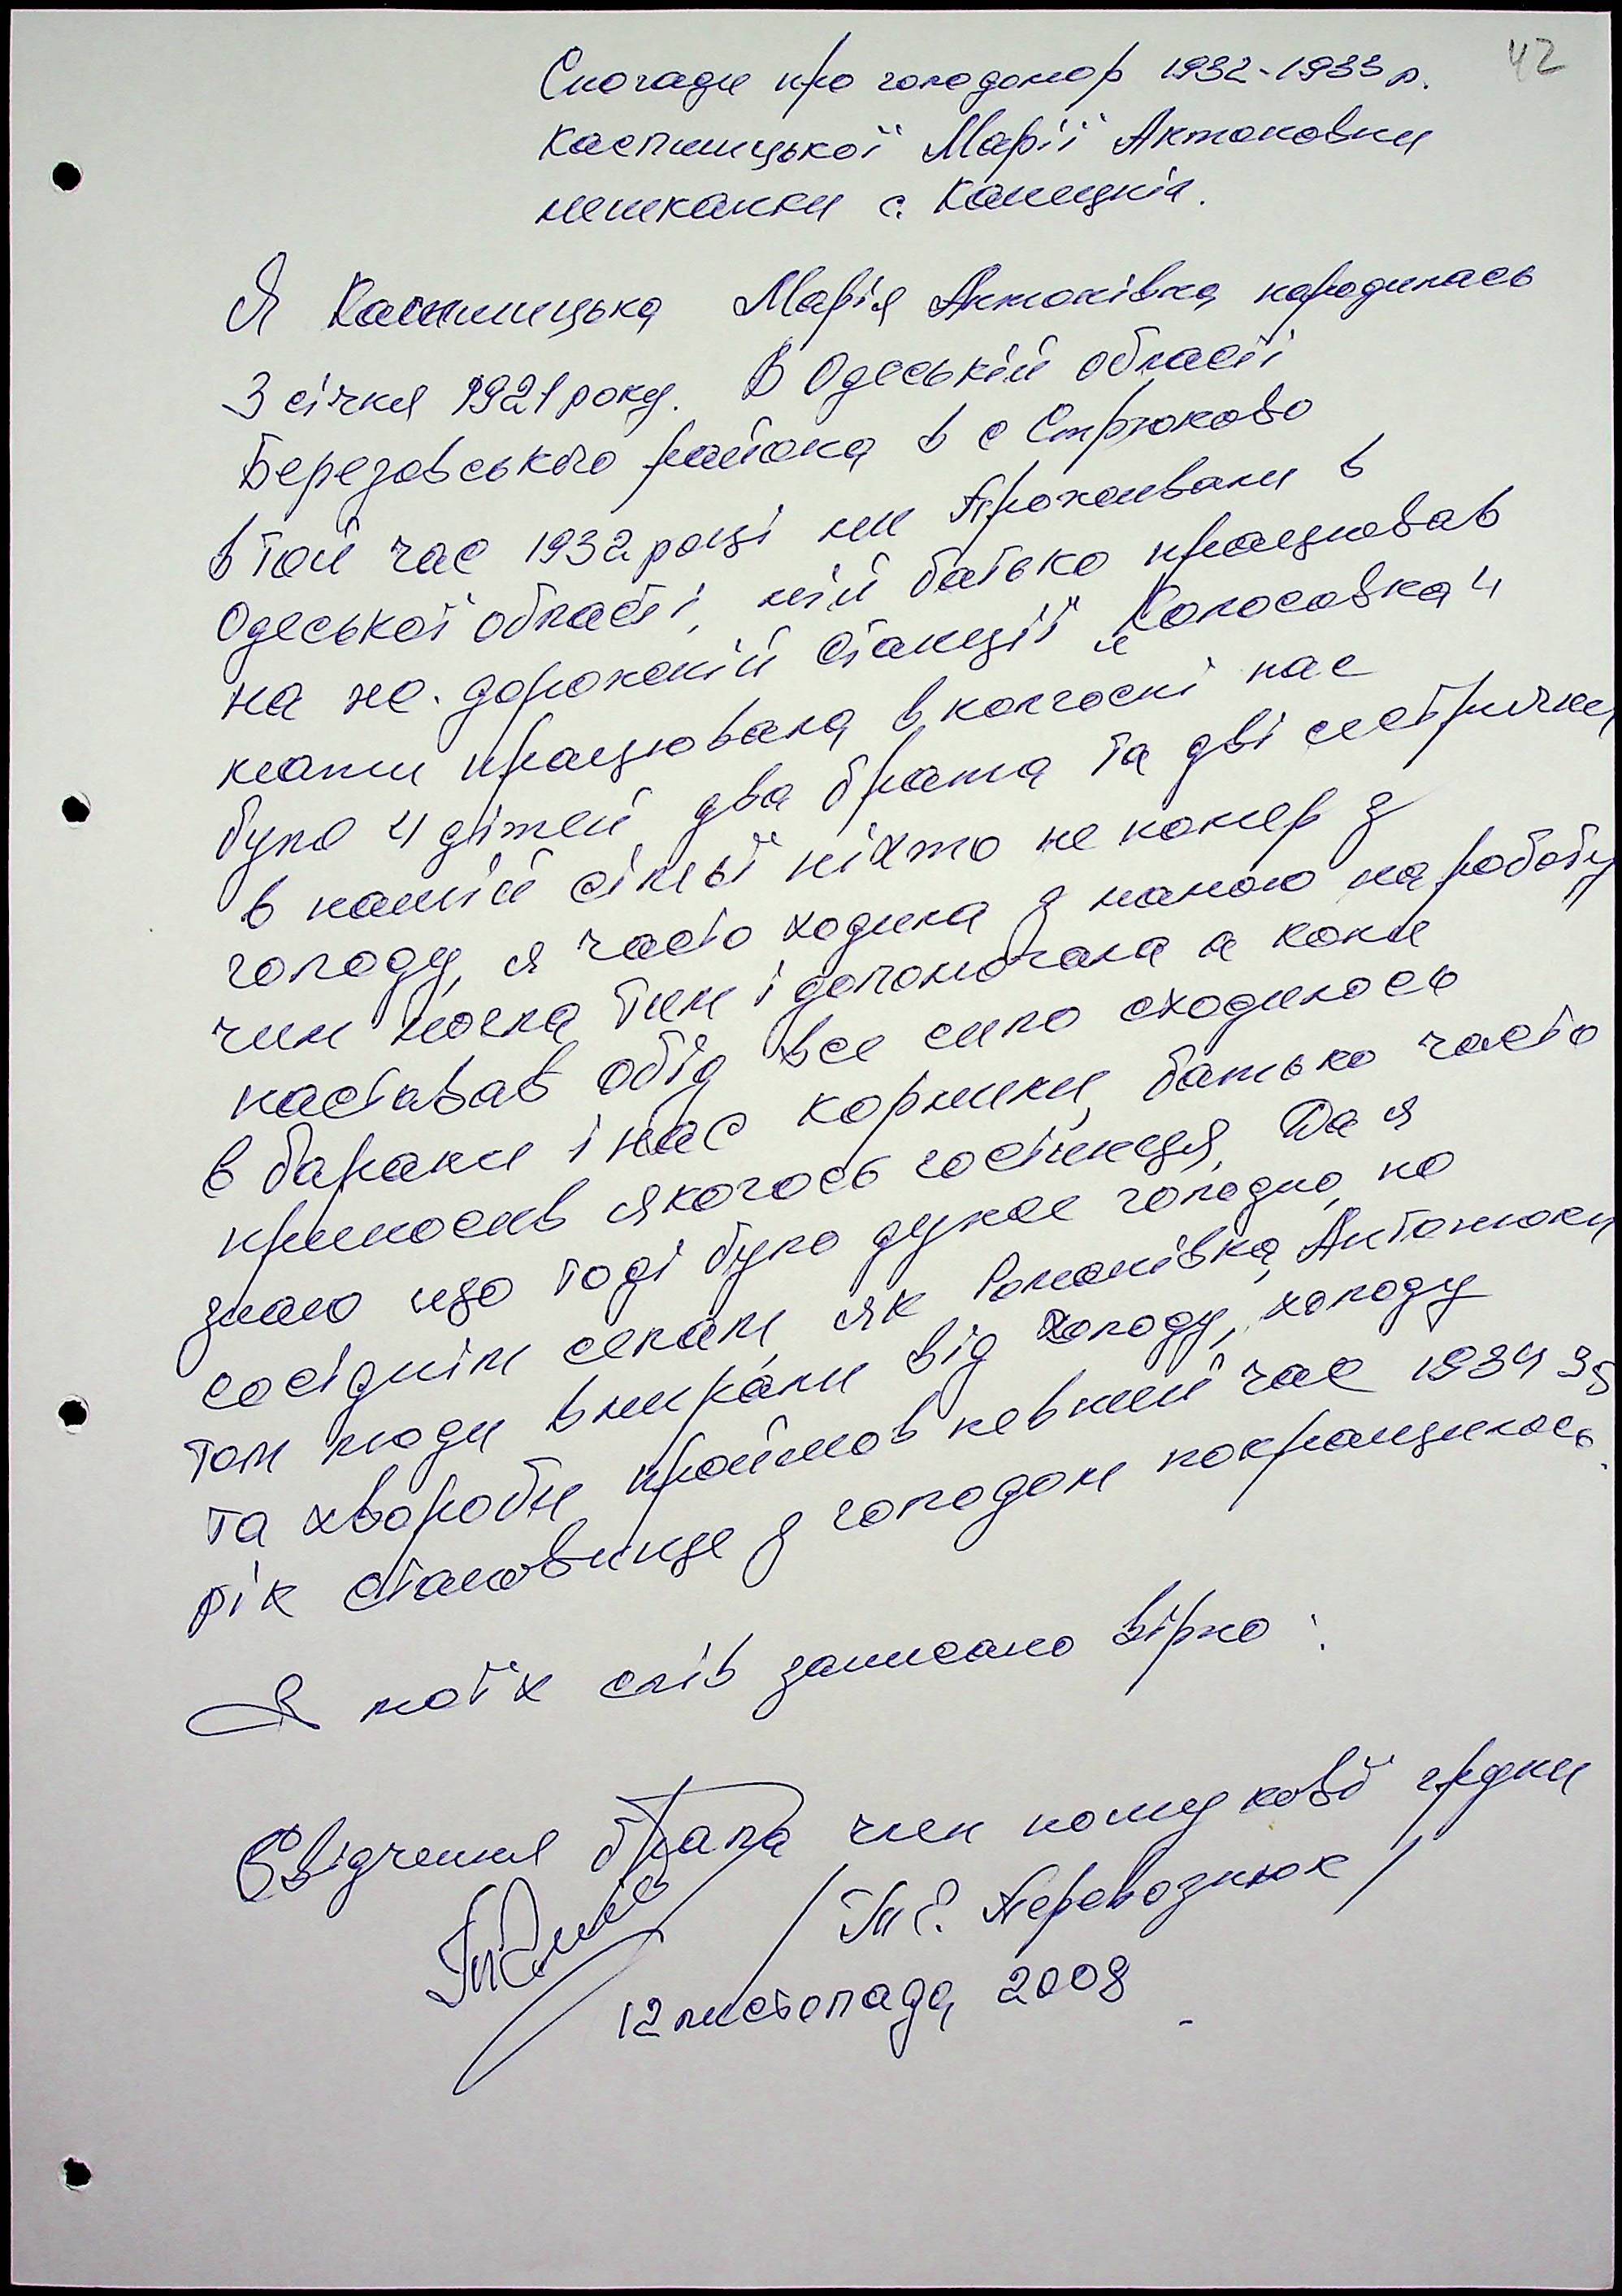 42
Спогади про голодомор 1932-1933 р.
Маріі Антоновни
мешканки с.
Я Марія Антонівна народилась
3 січня 1921 року. В Одеській області
Березовського района в с Стрюково
в той час 1932 році ми проживали в
Одеської області, мій батько працював
на же. дорожній станції "Колосовка"
мати працювала в колгоспі нас
було 4 дітей два брата та дві сестрички
в нашій сімьї ніхто не помер з
голоду, я часто ходила з мамою на роботу
чим могла тим і допомогала а коли
наставав обід все село сходилось
в бараки і нас кормили, батько часто
приносив якогось гостінця, Да я
знаю що тоді було дуже голодно, по
сосіднім селам, як Романівка, Антонюки
там люди вмирали від холоду, голоду
та хвороби пройшов певний час 1934 35
рік становище з голодом покращилось.
З моїх слів записано вірно:
Свідчення брала член пошукової групи
/ Т. Є. Перевознюк /
12 листопада 2008